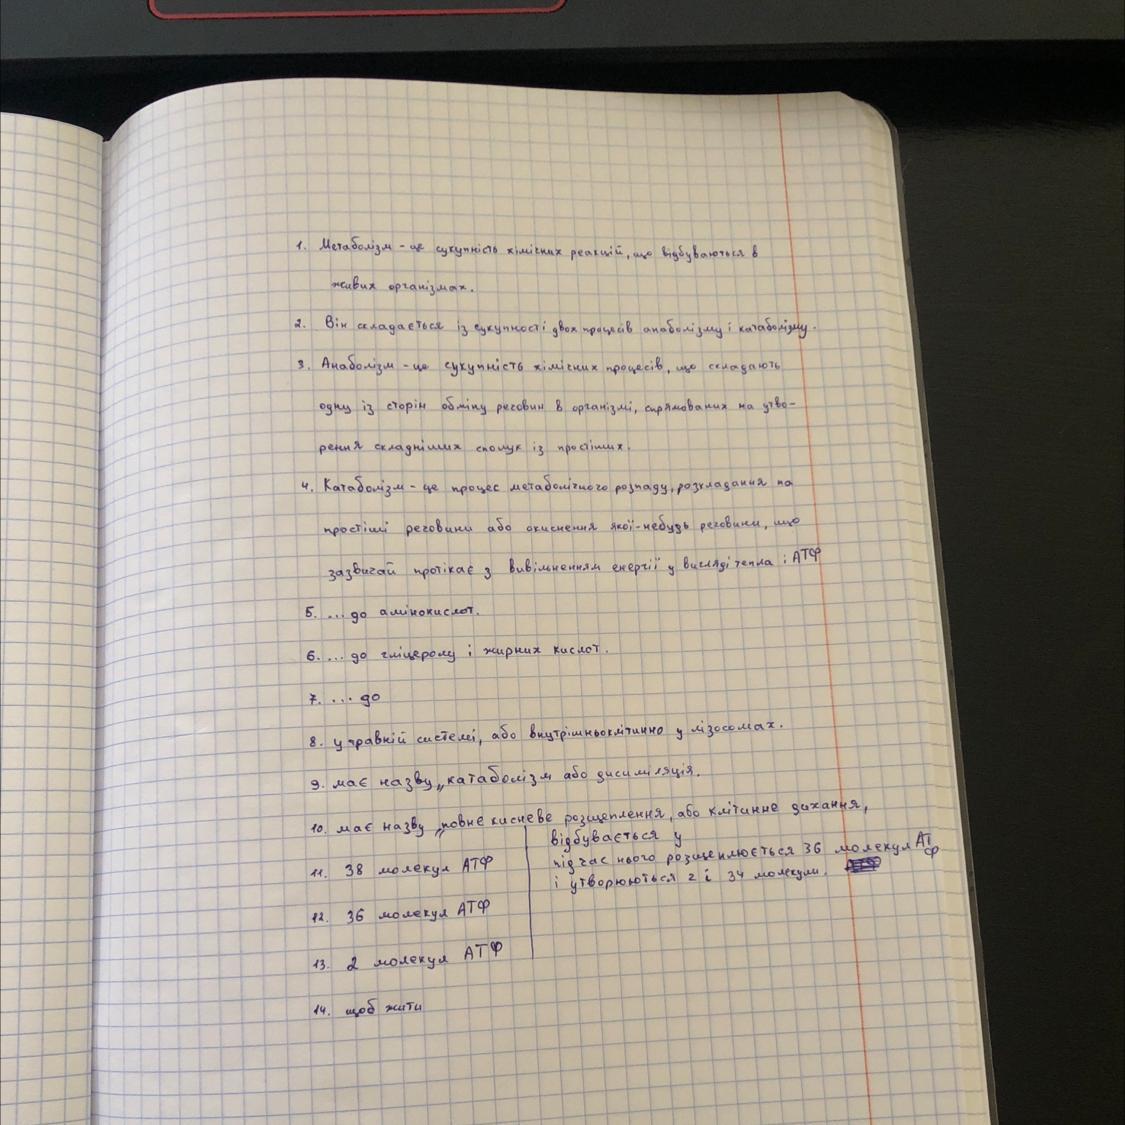 1. Метаболізм - це сукупність хімічних реакцій, що відбуваються в
живих організмах.
2. Він складається із сукупності двох процесів анаболізму і катаболізму.
3. Анаболізм - це сукупність хімічних процесів, що складають
одну із сторін обміну реговин в організмі, спрямованих на утво-
рення складніших сполук із простіших.
4. Катаболізм - це процес метаболічного розпаду, розкладання на
простіші реговини або окиснення якої-небудь реговини, що
зазвичай протікає з вивільненням енергії у вигляді тепла і АТФ
5. ... до амінокислот.
6. ... до гліцеролу і жирних кислот.
7. ... до
8. у травній системі, або внутрішньоклітинно у лізосомах.
9. має назву „катаболізм або дисиміляція.
10. має назву „повне кисневе розщеплення, або клітинне дихання,
відбувається у
під час нього розщеплюється 36 молекул АТФ
і утворюються 2 і 34 молекули.
11. 38 молекул АТФ
12. 36 молекул АТФ
13. 2 молекул АТФ
14. щоб жити